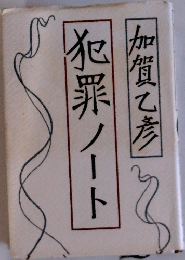 加賀乙彥
犯罪ノート